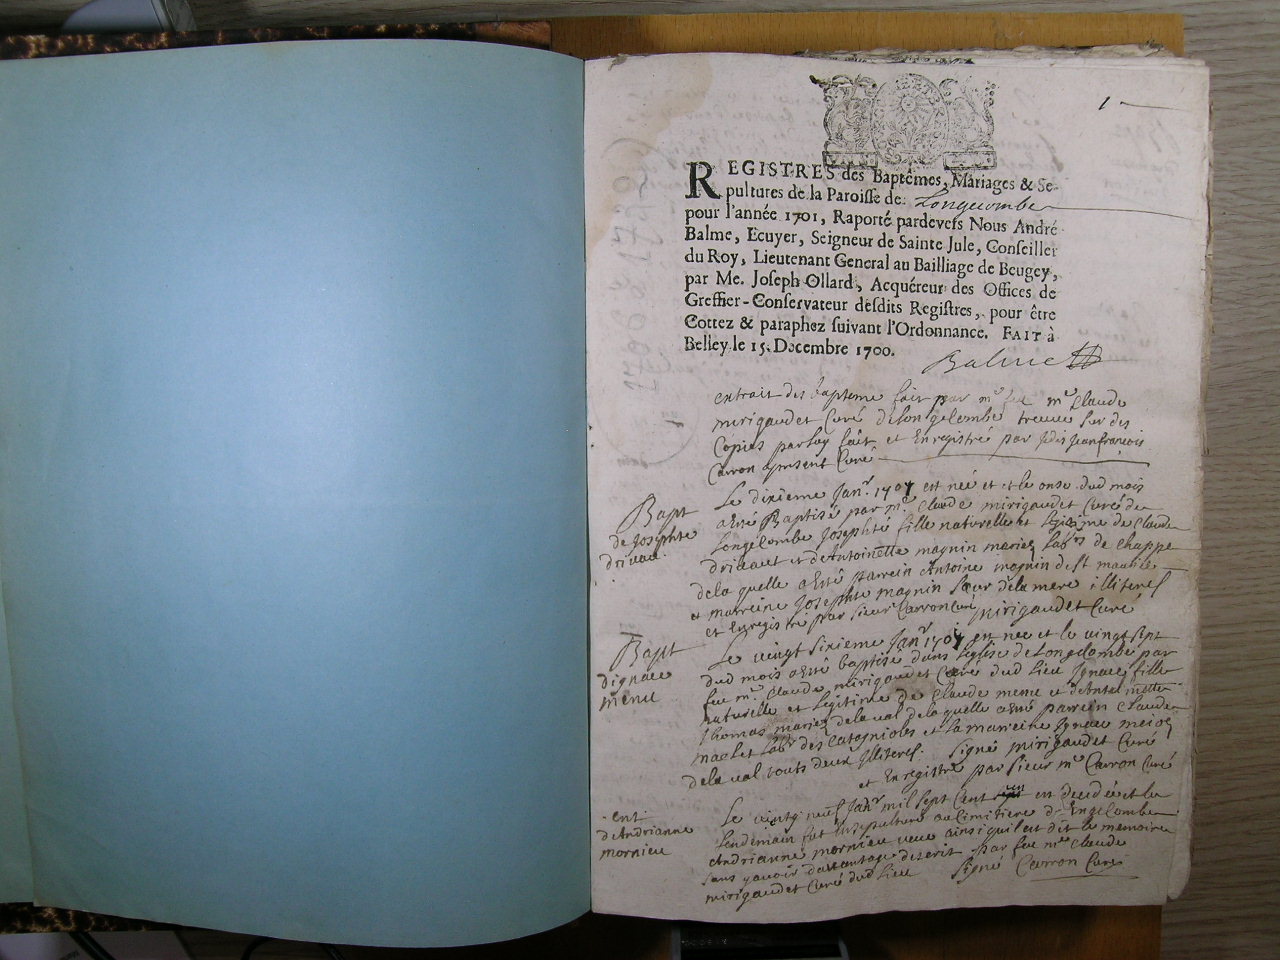 1
REGISTRES des Baptêmes, Mariages & Se-
pultures de la Paroisse de Longecombe
pour l'année 1701, Raporté pardevers Nous André
Balme, Ecuyer, Seigneur de Sainte Jule, Conseiller
du Roy, Lieutenant General au Bailliage de Beugey,
par Me. Joseph Ollard, Acquéreur des Offices de
Greffier-Conservateur desdits Registres, pour être
Cottez & paraphez suivant l'Ordonnance. FAIT à
Belley le 15. Decembre 1700.
Balme
extrait des bapteme fait par mre feu mre Claude
mirigaudet Curé de longecombe treuué sur des
Copies par luy fait et Enregistré par Jean françois
Carron present Curé
Bapt
de Josephte
driuau
Le dixieme Janr. 1701 est née et le onze dud mois
a esté Baptisé par mre Claude mirigaudet Curé de
longecombe Josephté fille naturelle et legitime de Claude
driuaut et de Antoinette magnin mariez labrs de Chappe
de la quelle a esté parrein Antoine magnin de st maurice
et marreine Josephte magnin sœur de la mere illiteres
et Enregistré par sieur Carron Curé mirigaudet Curé
Bapt
d'ignace
menu
Le vingt sixieme Janr 1701 est née et le vingt sept
dud mois a esté baptisé dans l'eglise de Longecombe par
feu mre Claude mirigaudet Curé dud lieu Ignace fille
naturelle et legitime de Claude menu et de
Thomas mariez de la val de la quelle a esté parrein Claude
labr des Catagnioles et la marreine Ignace
de la val touts deux Illiteres. signé mirigaudet Curé
et Enregistré par sieur mre Carron Curé
ent
d'Andrianne
mornieu
Le vingt neuf Janr mil sept Cent un est decedé et le
lendemain fut Insepulturé au Cimitiere de Longecombe
Andrianne mornieu veuue ainsi quil est dit le memoire
sans y auoir dauantage descrit par feu mre Claude
mirigaudet Curé dud lieu signé Carron Curé